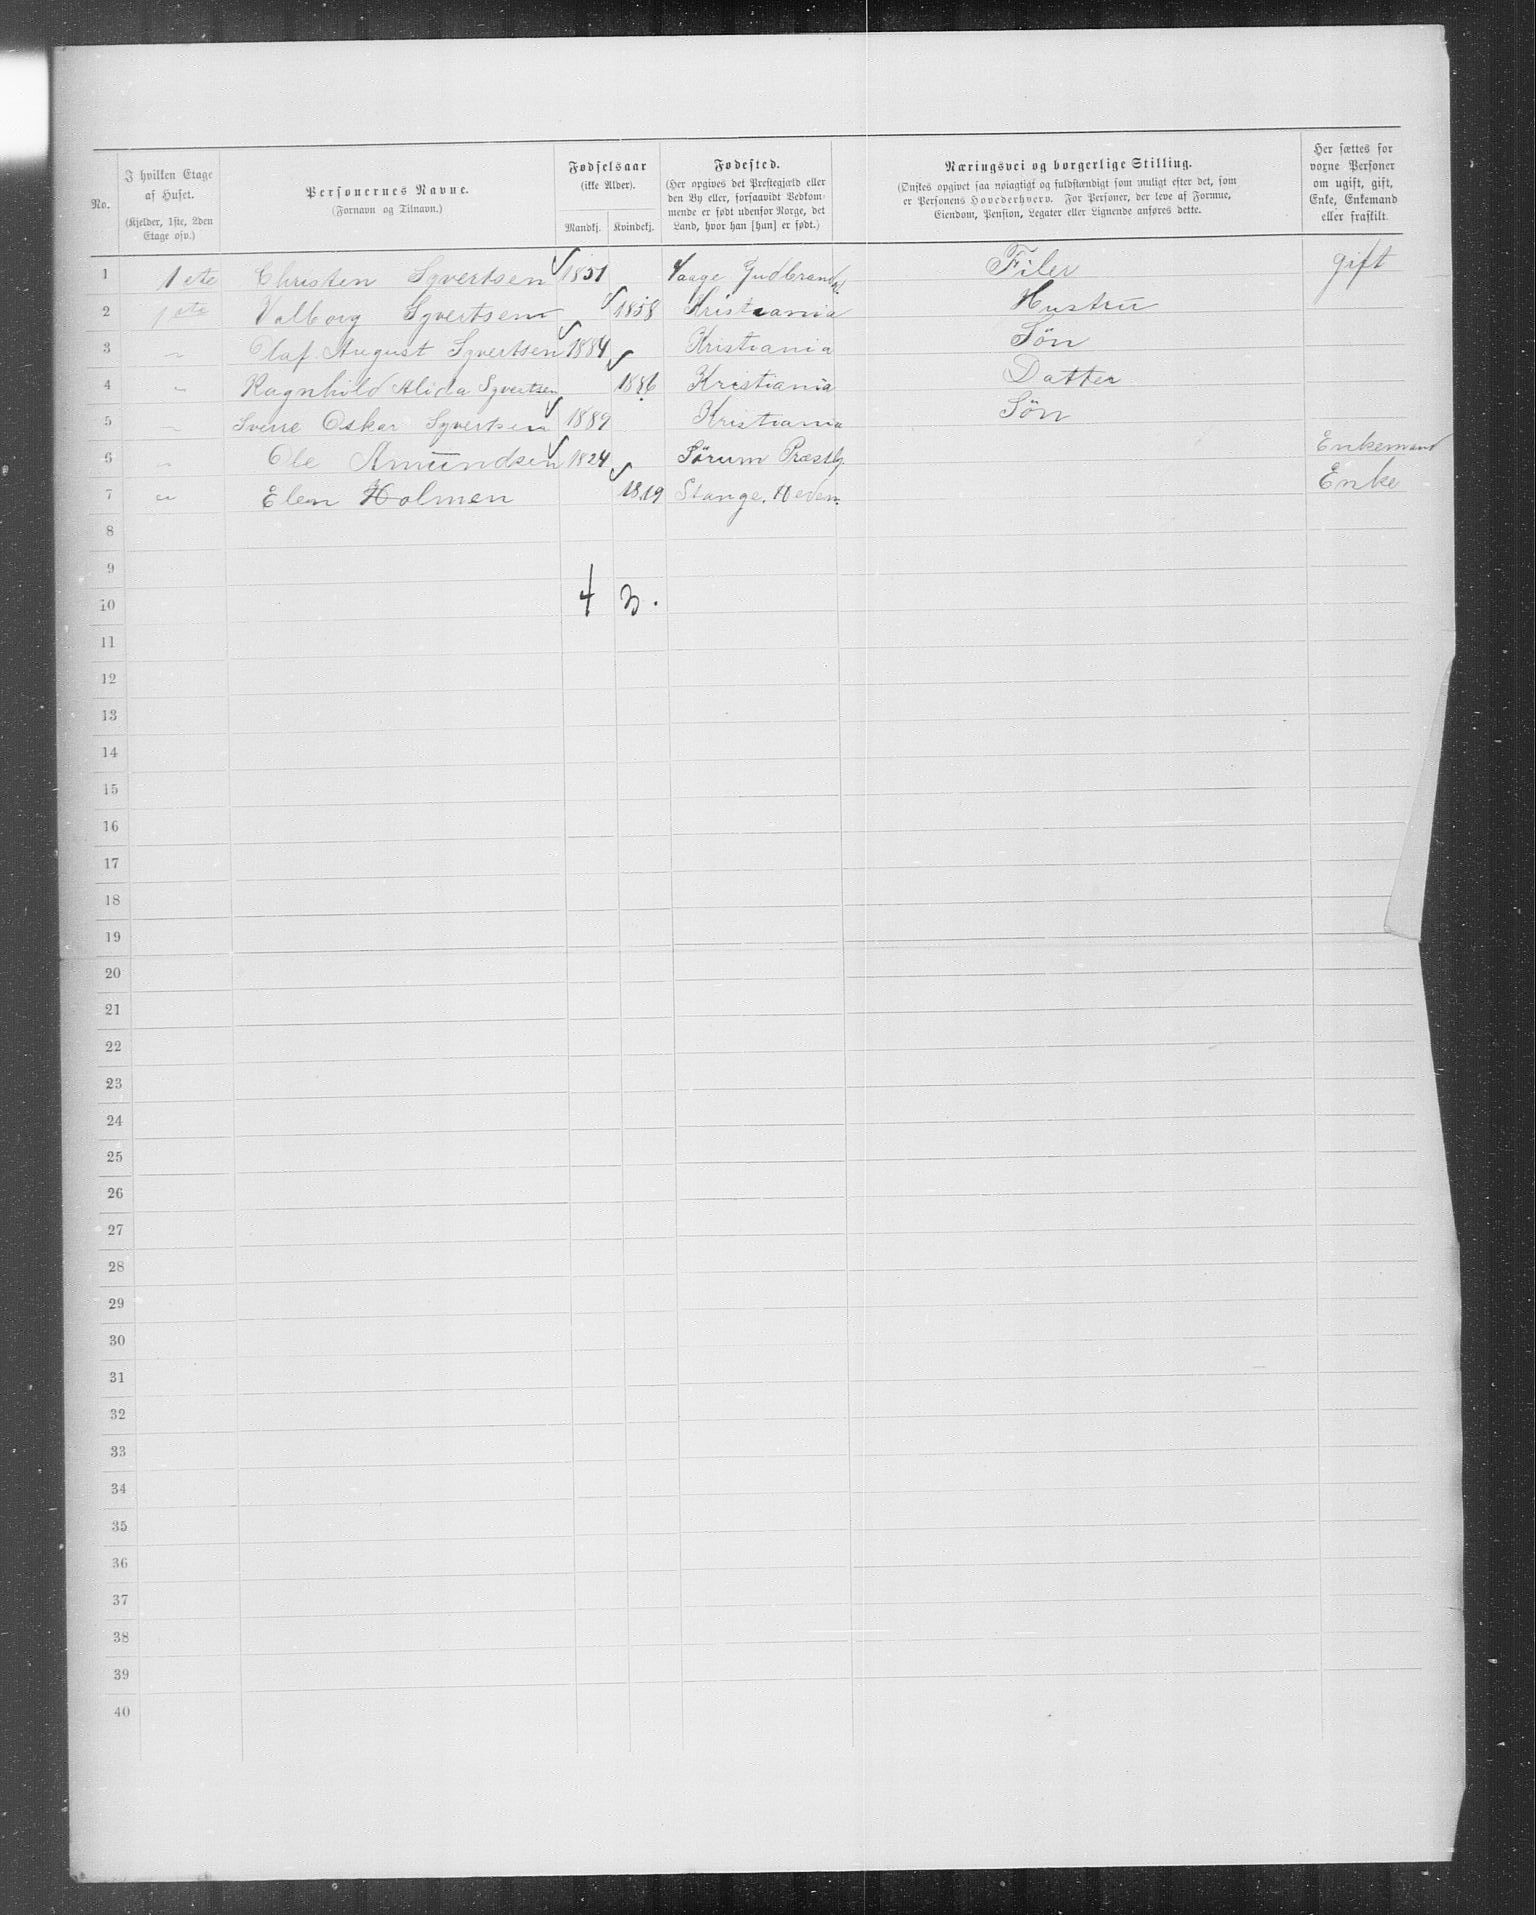 No.
I hvilken Etage af Huset.
(Kjelder, 1ste, 2den Etage osv.)
Personernes Navne.
(Fornavn og Tilnavn.)
Fødselsaar
(ikke Alder).
Mandkj. Kvindekj.
Fødested.
(Her opgives det Prestegjæld eller
den By eller, forsaavidt Vedkom-
mende er født udenfor Norge, det
Land, hvor han [hun] er født.)
Næringsvei og borgerlige Stilling.
(Ønskes opgivet saa nøiagtigt og fuldstændigt som muligt efter det, som
er Personens Hovederhverv. For Personer, der leve af Formue,
Eiendom, Pension, Legater eller Lignende anføres dette.
Her sættes for
voxne Personer
om ugift, gift,
Enke, Enkemand
eller fraskilt.
1 1 ete Christen Syvertsen 1851 Vaage Gudbrands. Filer gift
2 1 ete Valborg Syvertsen 1858 Kristiania Hustru
3 " Olaf August Syvertsen 1884 Kristiania Søn
4 " Ragnhild Alida Syvertsen 1886 Kristiania Datter
5 " Sverre Oskar Syvertsen 1889 Kristiania Søn
6 " Ole Amundsen 1824 Sørum Præstg. Enkemand
7 " Elen Holmen 1819 Stange. Hedem. Enke
8
9
10 4 3.
11
12
13
14
15
16
17
18
19
20
21
22
23
24
25
26
27
28
29
30
31
32
33
34
35
36
37
38
39
40